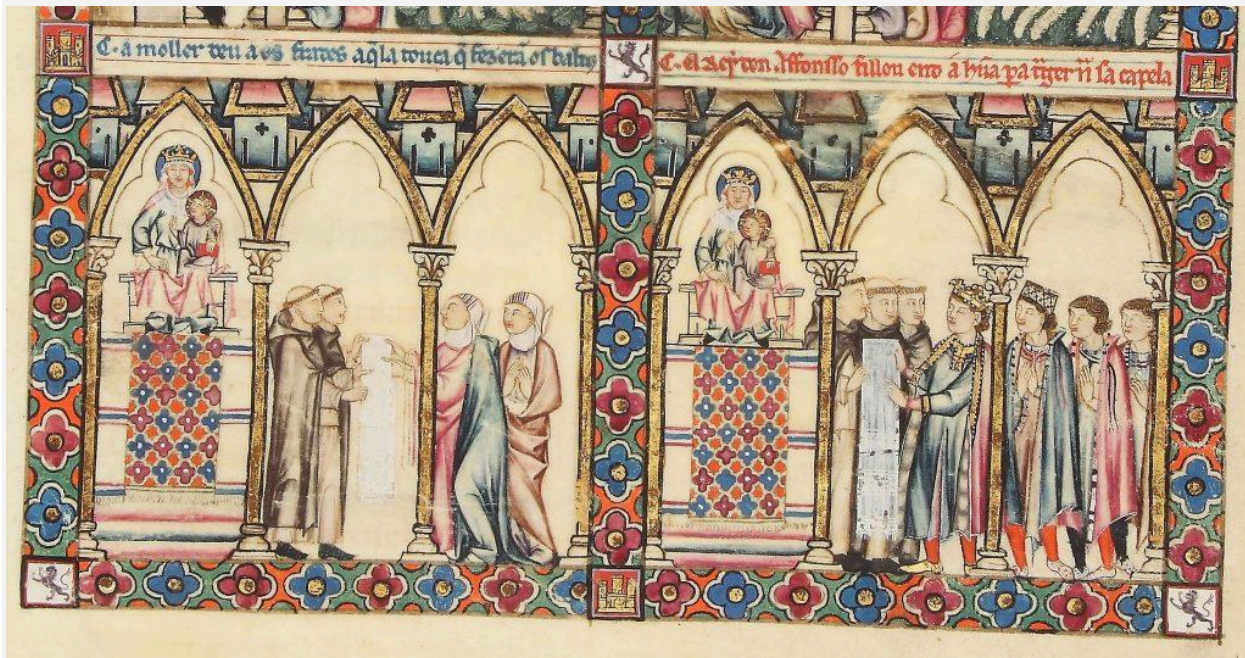 C. a moller deu a os frades aq̃la touca q̃ fezerã os
C. el Rey don Affonsso fillou a hũa pa sa capela